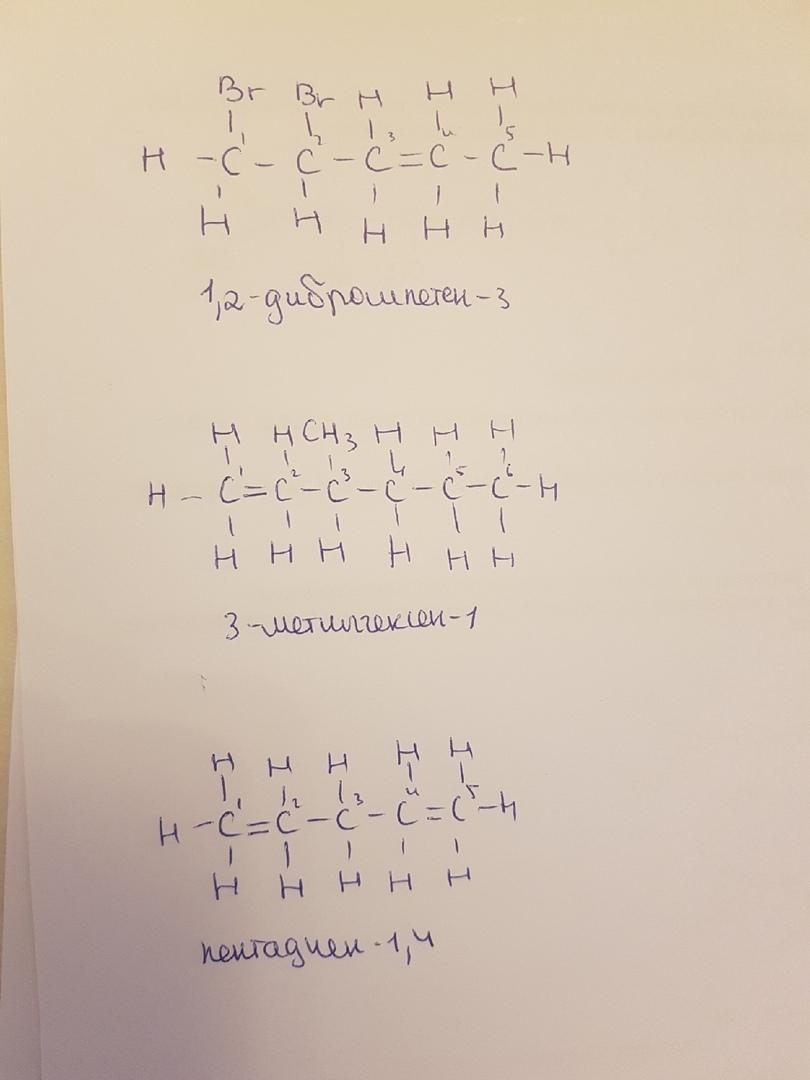 Br Br H H H
H - C¹ - C² - C³ = C⁴ - C⁵ - H
H H H H H
1,2-дибромпетен-3
H H CH3 H H H
H - C¹ = C² - C³ - C⁴ - C⁵ - C⁶ - H
H H H H H H
3-метилгексен-1
H H H H H
H - C¹ = C² - C³ - C⁴ = C⁵ - H
H H H H H
пентадиен-1,4